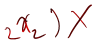 ₂x₂) X